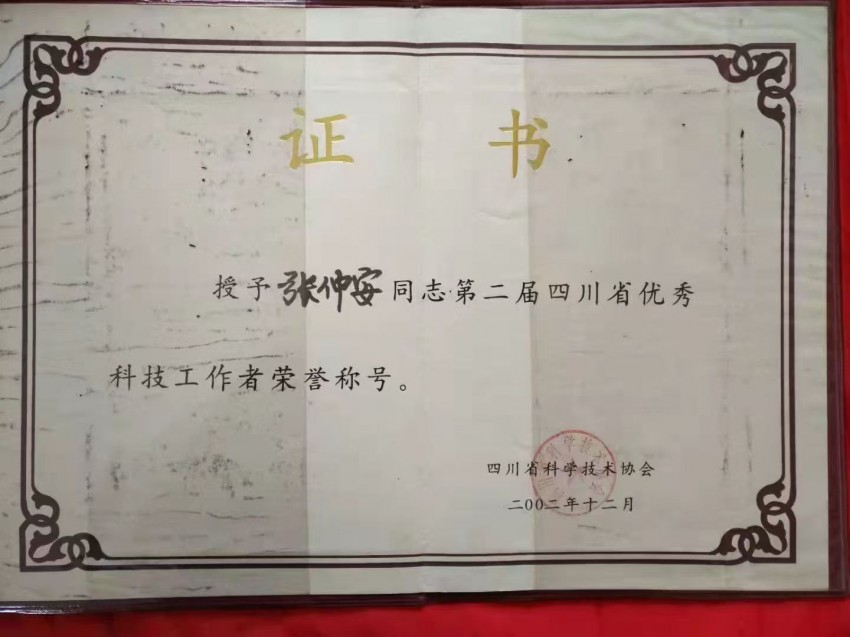 证 书
授予张仲安同志第二届四川省优秀
科技工作者荣誉称号。
四川省科学技术协会
二00二年十二月